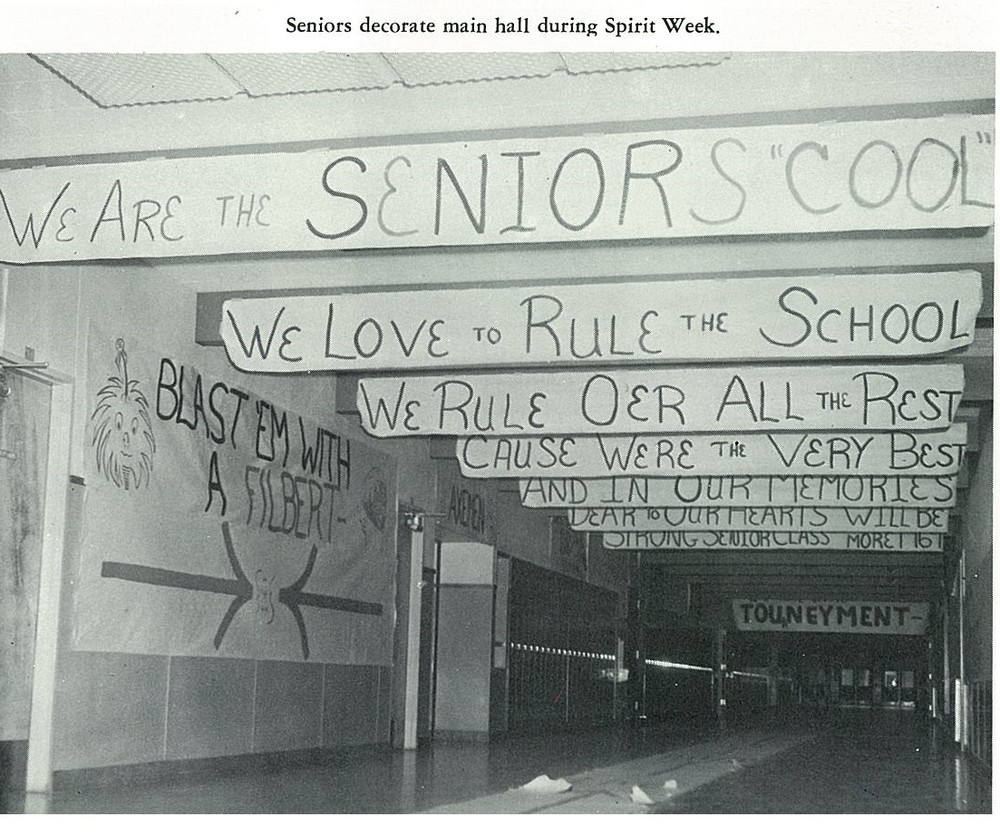 Seniors decorate main hall during Spirit Week.
WE ARE THE SENIORS "COOL"
WE LOVE TO RULE THE SCHOOL
WE RULE OER ALL THE REST
CAUSE WERE THE VERY BEST
AND IN OUR MEMORIES
DEAR TO OUR HEARTS WILL BE
STRONG SENIOR CLASS MORE
BLAST 'EM WITH
A FILBERT-
AXEMEN
TOURNEYMENT-